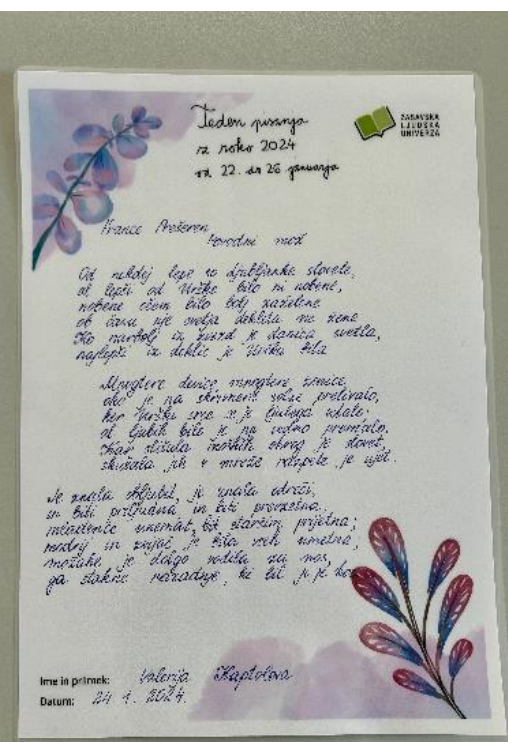 Teden pisanja
z roko 2024
od 22. do 26 januarja
ZASAVSKA
LJUDSKA
UNIVERZA
France Prešeren
Povodni mož
Od nekdej lepe so Ljubljanke slovele,
al lepši od Urške bilo ni nobene,
nobene očem bilo bolj zaželene
ob času nje cvetja dekliša ne žene.
Ko narbolj iz zvezd je danica svetla,
najlepši iz deklic je Urška bila
Mnogtere device, mnogtere ženice
oko je na skrivnem solze prelivalo,
ker Urški srce se je ljubega vdalo;
al ljubih bilo je na vedno premalo.
Kar slišala moških okrog je slovet,
skušala jih v mreže razpete je ujet.
Je znala obljubit, je znala odreči,
in biti prijazna in biti prevzetna,
mladenče unemat, bit starším prijetna;
modrij in zvijač je bila vseh umetna;
možake je dolgo vodila za nos,
ga stakne nazadnje, ki bil ji je kos
Ime in priimek: Valerija Kaptolova
Datum: 24. 1. 2024.